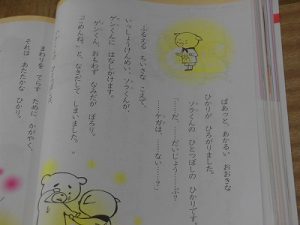 ぱあっと、あかるい おおきな
ひかりが ひろがりました。
ソラくんの ひとつぼしの ひかりです。
「……だ、だいじょう……ぶ?
……けがは、……ない……?」
ふるえる ちいさな こえで、
いっしょうけんめい ソラくんが、
ゲンくんに はなしかけます。
ゲンくん、おもわず なみだが ぽろり。
「ごめんね。」と なきだして しまいました。
まわりを てらす ために かがやく、
それは あたたかな ひかり。